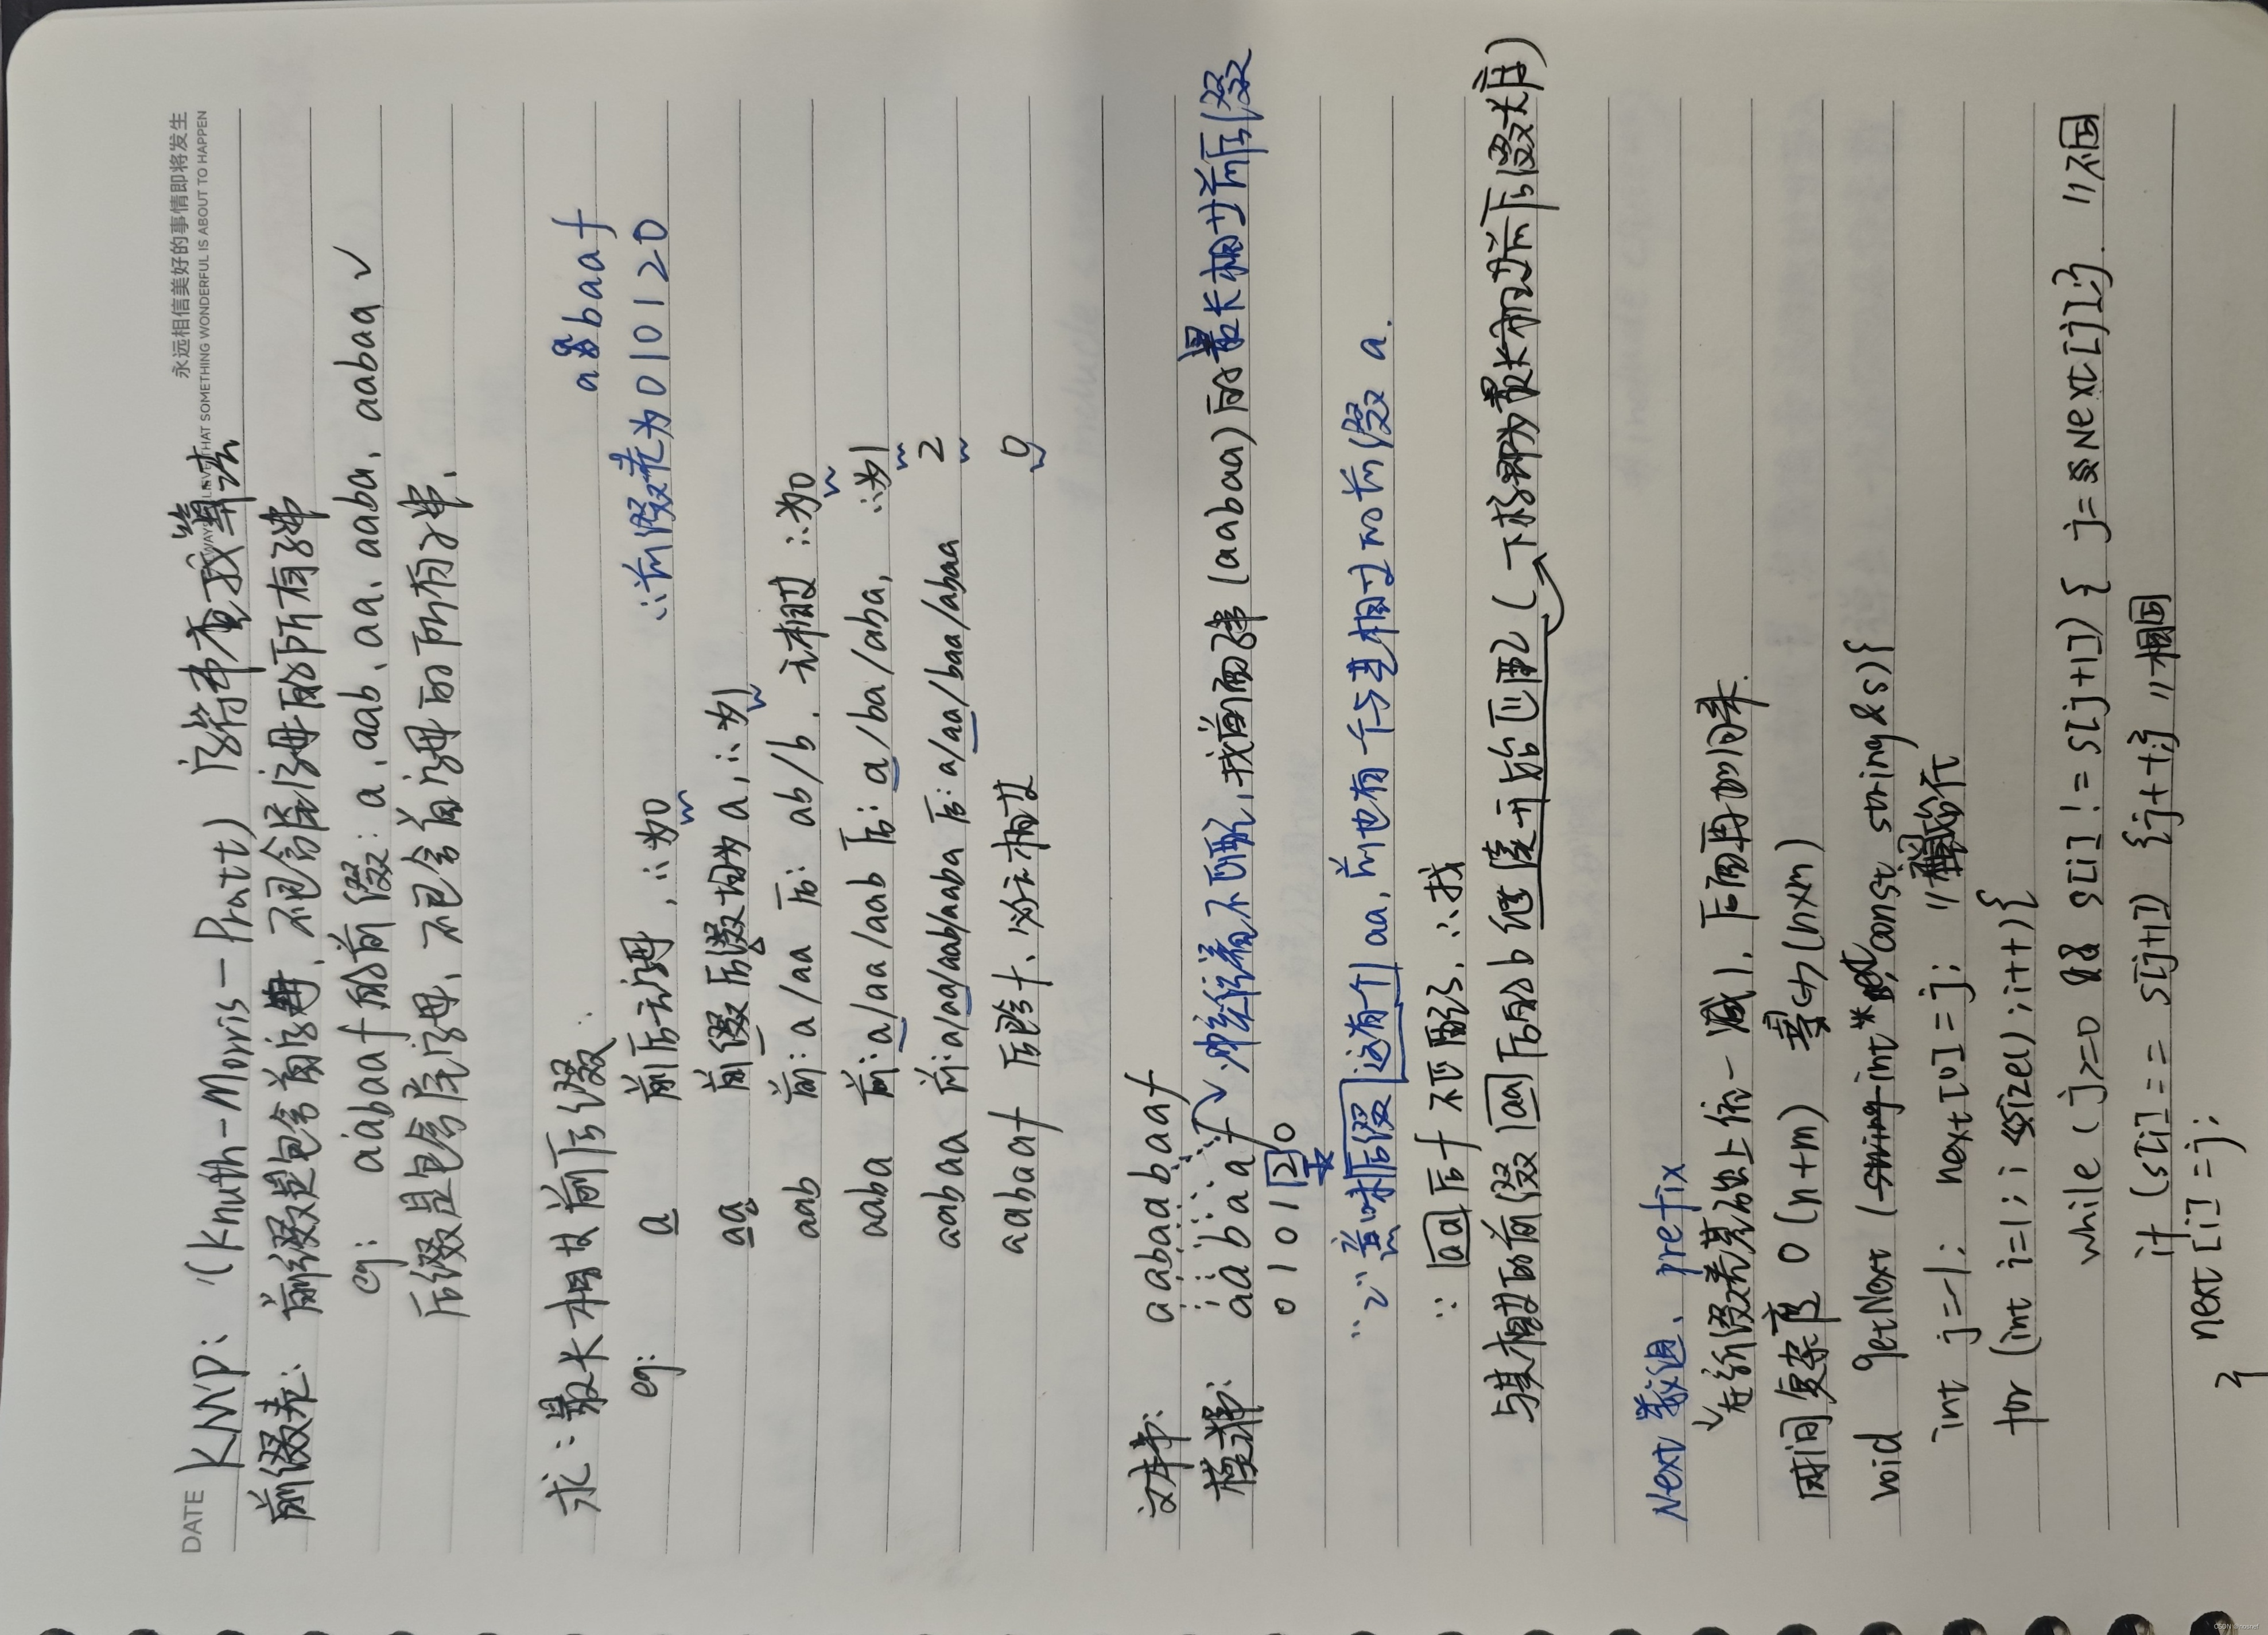 永远相信美好的事情即将发生
DATE
ALWAYS BELIEVE THAT SOMETHING WONDERFUL IS ABOUT TO HAPPEN
KMP: (Knuth-Morris-Pratt) 字符串查找算法
前缀表: 前缀是包含首字母、不包含尾字母的所有子串
eg: aabaaf的前缀: a、aab、aa、aaba、aabaa ✓
后缀是包含尾字母、不包含首字母的所有子串.
求: 最长相等前后缀. aabaaf
eg: a 前后无字母, ∴为0 ∴前缀表为010120
aa 前缀后缀均为a, ∴为1
aab 前: a/aa 后: ab/b. 无相等 ∴为0
aaba 前: a/aa/aab 后: a/ba/aba, ∴为1
aabaa 前: a/aa/aab/aaba 后: a/aa/baa/abaa 2
aabaaf 后缀含f、必无相等 0
文本串: aabaabaaf
模式串: aabaaf 不匹配, 找前面子串(aabaa)的最长相等前后缀
0 1 0 1 2 0
"2"意味后缀这有个aa, 前也有个与其相等的前缀a.
∵ aa后f不匹配了, ∴找
与其相等的前缀aa后的b继续开始匹配 (下标即为最长相等前后缀大小)
Next数组、prefix
在前缀表基础上统一减1, 后面再加回来.
时间复杂度 O(n+m) 暴力(n×m)
void getNext (string int* next, const string& s){
int j=-1; next[0]=j; //初始化
for (int i=1; i<s.size(); i++){
while (j>=0 && s[i] != s[j+1]) { j= next[j];} //不同
if (s[i] == s[j+1]) {j++;} //相同
next[i]=j;
}